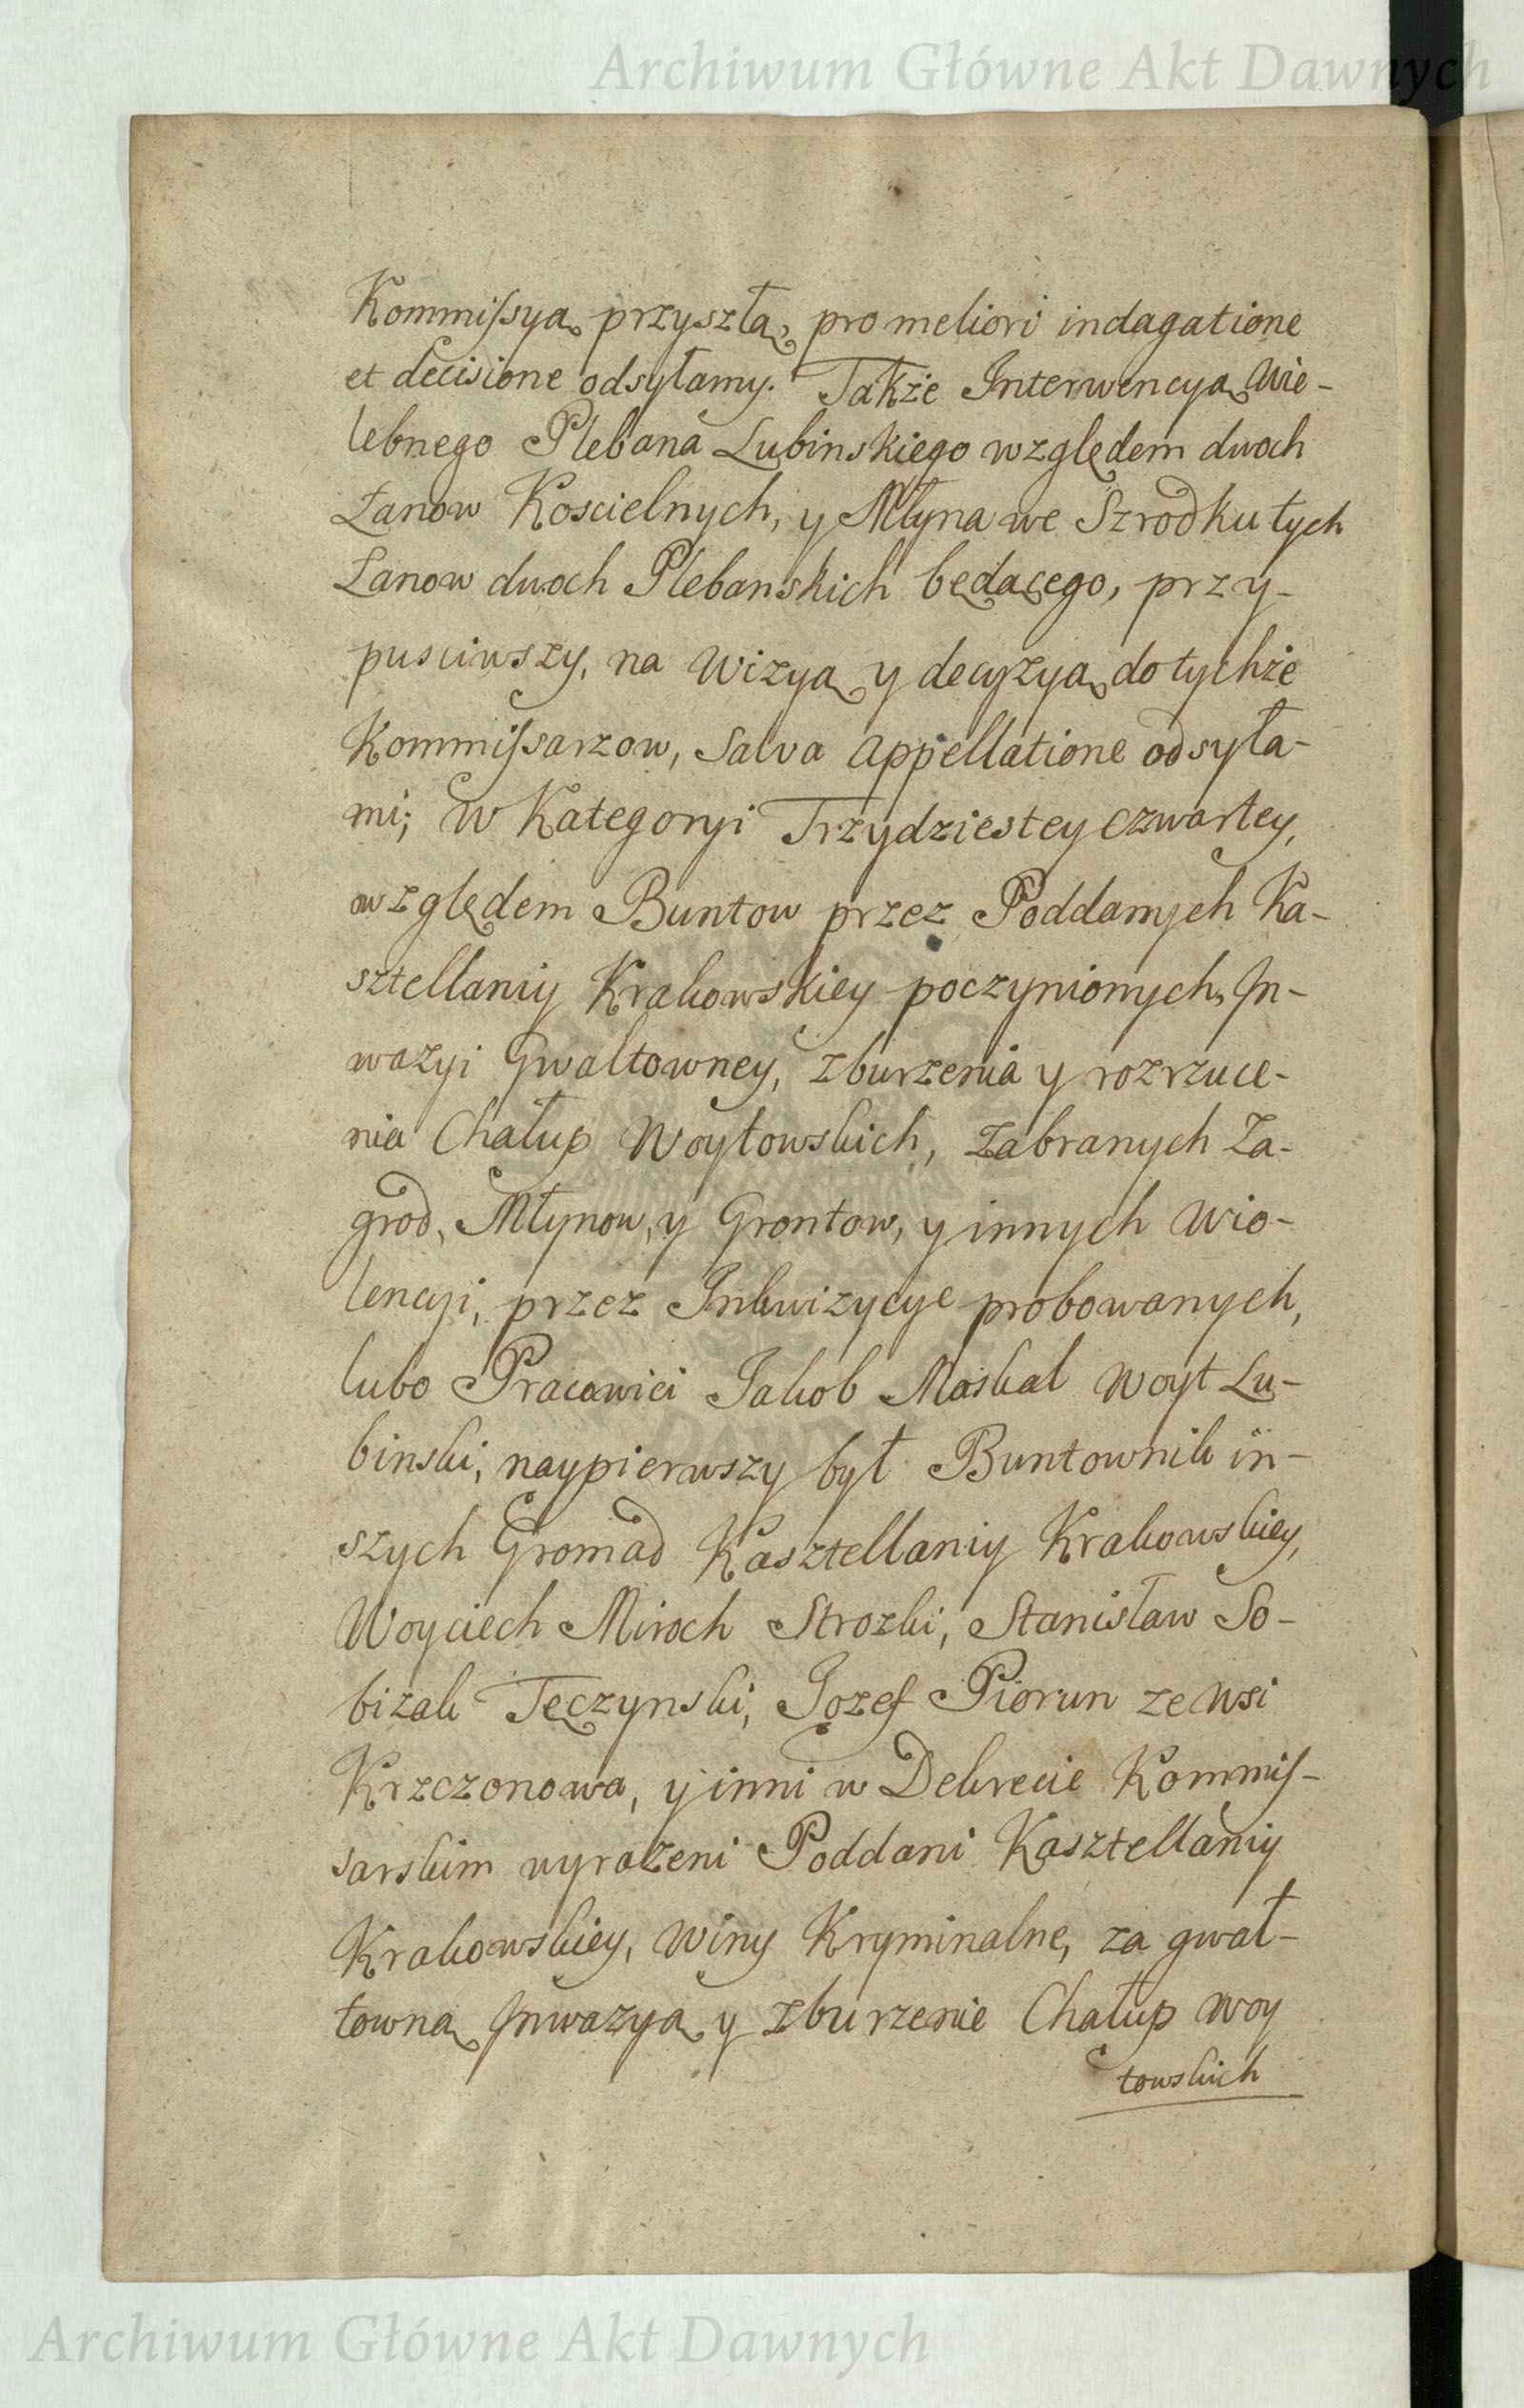 Archiwum Główne Akt Dawnych
Kommiſsyą przyszłą, pro meliori indagatione
et decisione odsyłamy. Także Interwencyą Wie-
lebnego Plebana Lubinskiego względem dwoch
Łanow Koscielnych, y Młyna we Szrodku tych
Łanow dwoch Plebanskich będącego, przy-
pusciwszy, na Wizyą y decyzyą do tychże
Kommiſsarzow, Salva Appellatione odsyła-
mi; w Kategoryi Trzydziestey czwartey,
względem Buntow przez Poddanych Ka-
sztellaniy Krakowskiey poczynionych, In-
wazyi Gwałtowney, zburzenia y rozrzuce-
nia Chałup Woytowskich, zabranych Za-
grod, Młynow, y Grontow, y innych Wio-
lencyi, przez Inkwizycye probowanych,
lubo Pracowici Jakob Moskal Woyt Lu-
binski, naypierwszy był Buntownik in-
szych Gromad Kasztellaniy Krakowskiey,
Woyciech Miroch Strozki, Stanisław So-
bizak Tęczynski, Jozef Piorun ze Wsi
Krzczonowa, y inni w Dekrecie Kommiſ-
sarskim wyrażeni Poddani Kasztellaniy
Krakowskiey, Winy Kryminalne, za gwał-
towną Inwazyą y zburzenie Chałup Woy
towskich
Archiwum Główne Akt Dawnych